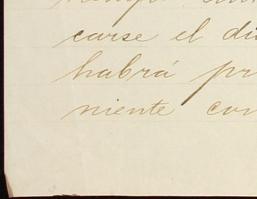 carse el di
habrá pr
niente con